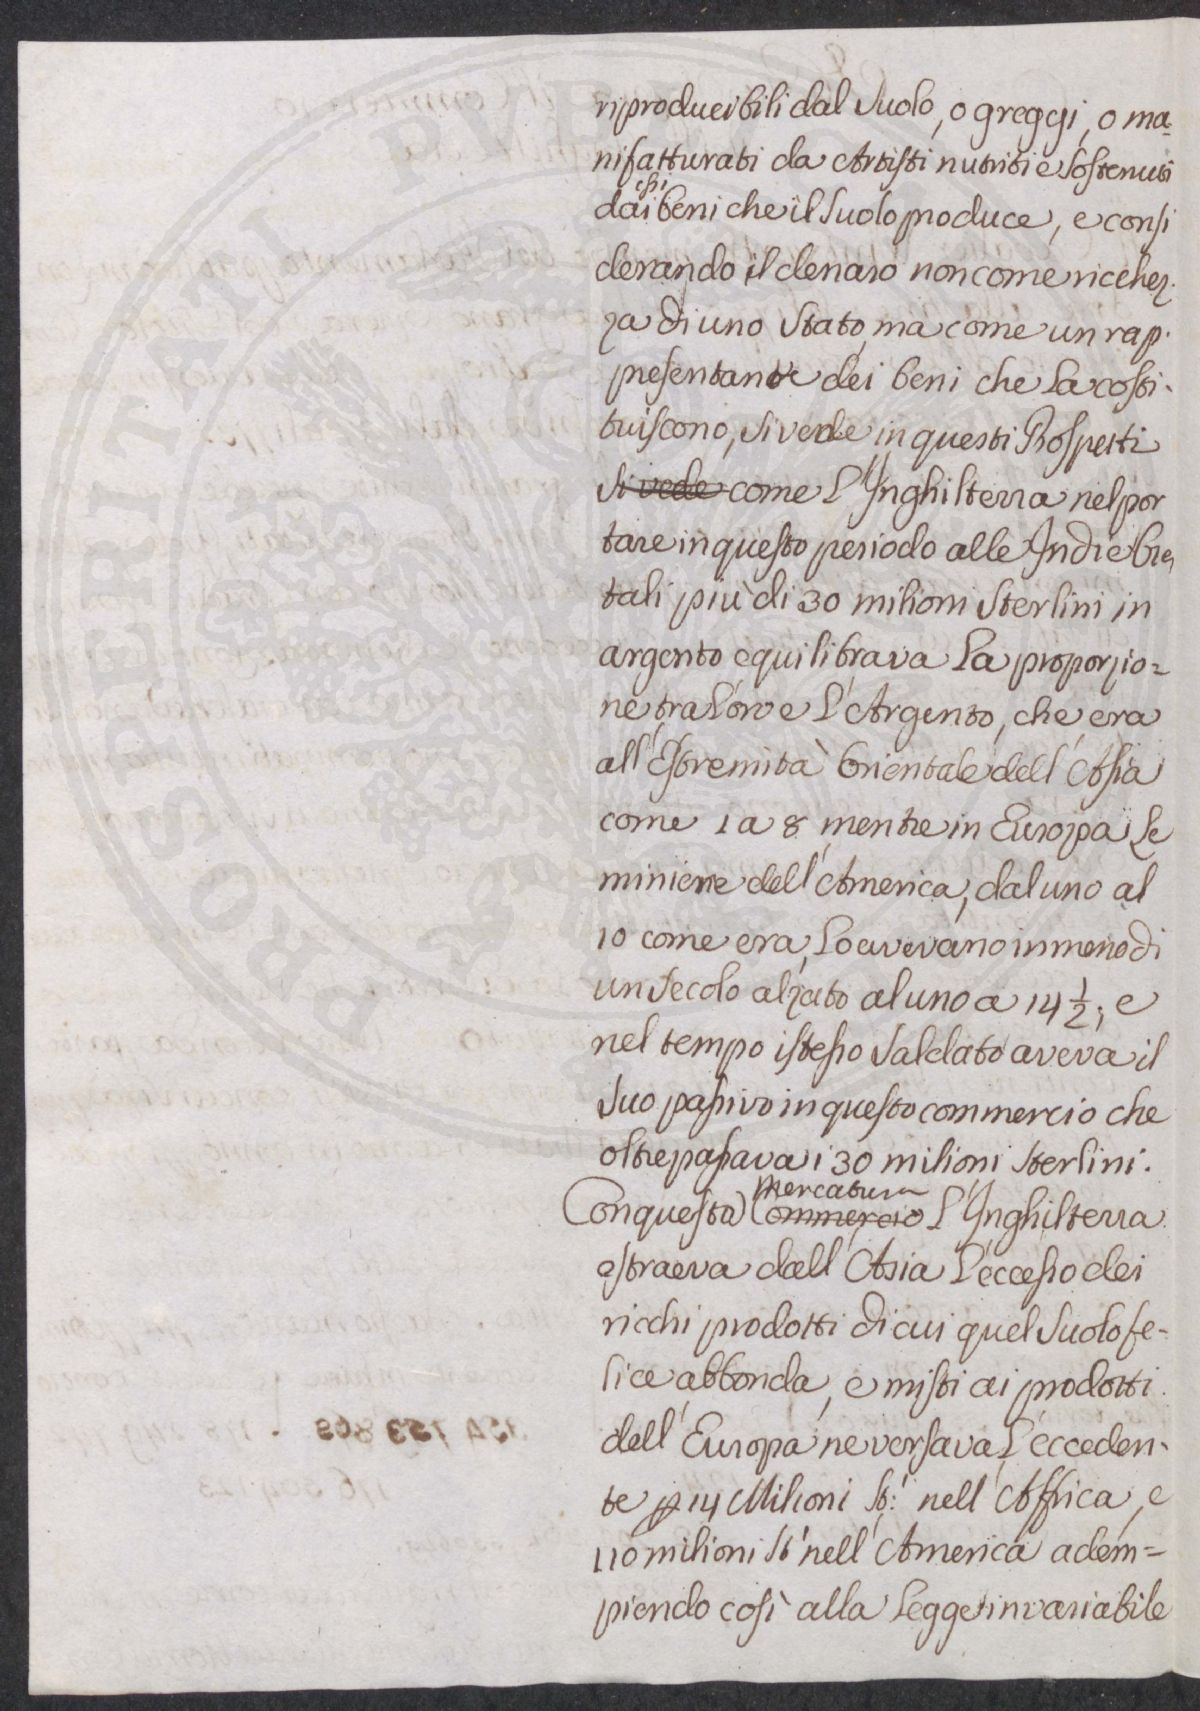 riproducibili dal Suolo, o greggi, o ma-
nifatturati da Artisti nutriti e sostenuti
essi
dai beni che il Suolo produce, e consi
derando il denaro non come ricchez-
za di uno Stato, ma come un rap-
presentante dei beni che la costi-
tuiscono, si vede in questi Prospetti
si vede come l'Inghilterra nel por
tare in questo periodo alle Indie Orien
tali più di 30 milioni Sterlini in
argento equilibrava la proporzio=
ne tra l'oro e l'Argento, che era
all'Estremità Orientale dell'Asia
come 1 a 8 mentre in Europa le
miniere dell'America, dal uno al
10 come era, lo avevano in meno di
un secolo alzato al uno a 14 1/2; e
nel tempo istesso saldato aveva il
suo passivo in questo commercio che
oltrepassava i 30 milioni Sterlini.
Mercatura
Con questa Commercio l'Inghilterra
estraeva dall'Asia l'eccesso dei
ricchi prodotti di cui quel Suolo fe-
lice abbonda, e misti ai prodotti
dell'Europa ne versava l'ecceden-
te p 14 Milioni St: nell'Affrica, e
110 milioni St nell'America adem=
piendo così alla Legge invariabile
PROSPERITATI PVBLICAE